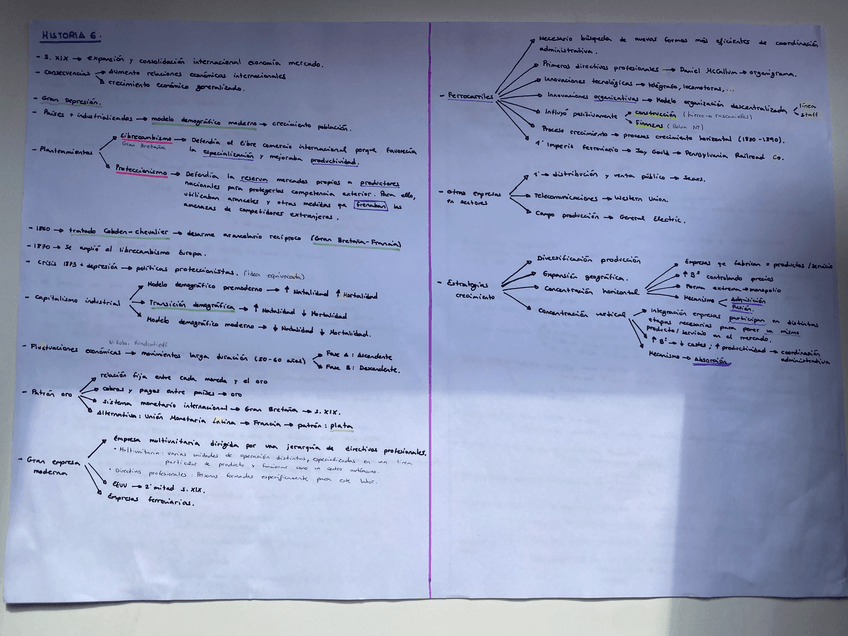 HISTORIA 6.
- S. XIX → expansión y consolidación internacional economía mercado.
- Consecuencias → aumento relaciones económicas internacionales
crecimiento económico generalizado.
- Gran Depresión.
- Países + industrializados → modelo demográfico moderno → crecimiento población.
- Planteamientos
Librecambismo → Defendía el libre comercio internacional porque favorecía
Gran Bretaña
la especialización y mejoraba productividad.
Proteccionismo → Defendía la reserva mercados propios a productores
nacionales para protegerlos competencia exterior. Para ello,
utilizaban aranceles y otras medidas que frenaban las
amenazas de competidores extranjeros.
- 1860 → tratado Cobden-chevalier → desarme arancelario recíproco (Gran Bretaña-Francia)
- 1870 → Se amplió el librecambismo Europa.
- Crisis 1873 + depresión → políticas proteccionistas. (idea equivocada)
- Capitalismo industrial
Modelo demográfico premoderno → ↑ Natalidad ↑ Mortalidad
Transición demográfica → ↑ Natalidad ↓ Mortalidad
Modelo demográfico moderno → ↓ Natalidad ↓ Mortalidad.
- Fluctuaciones económicas → movimientos larga duración (50-60 años)
Fase A: Ascendente
Fase B: Descendente.
- Patrón oro
relación fija entre cada moneda y el oro
cobros y pagos entre países → oro
Sistema monetario internacional → Gran Bretaña → S. XIX.
Alternativa: Unión Monetaria Latina → Francia → patrón: plata
- Gran empresa
moderna
Empresa multiunitaria dirigida por una jerarquía de directivos profesionales.
• Multiunitaria: varias unidades de operación distintas, especializadas en una línea
particular de producto y funcionar como un centro autónomo.
• Directivos profesionales: Personas formadas específicamente para esta labor.
EEUU → 2ª mitad S. XIX.
Empresas ferroviarias.
- Ferrocarriles
Necesario búsqueda de nuevas formas más eficientes de coordinación
administrativa.
Primeros directivos profesionales → Daniel McCallum → organigrama.
Innovaciones tecnológicas → telégrafo, locomotoras,...
Innovaciones organizativas → Modelo organización descentralizada
línea
staff
Influyó positivamente
construcción
Finanzas (Bolsa NY)
Proceso crecimiento → proceso crecimiento horizontal (1880-1890).
1º Imperio ferroviario → Jay Gould → Pennsylvania Railroad Co.
- Otras empresas
en sectores
1º → distribución y venta público → Sears.
Telecomunicaciones → Western Union.
Campo producción → General Electric.
- Estrategias
crecimiento
Diversificación producción
Expansión geográfica.
Concentración horizontal
Empresas que fabrican = productos/servicio
↑ Bº controlando precios
Forma extrema → monopolio
Mecanismo
adquisición
Fusión.
Concentración vertical
Integración empresas participan en distintas
etapas necesarias para poner un mismo
producto/servicio en el mercado.
↑ Bº → ↓ costes; ↑ productividad → coordinación
administrativa
Mecanismo → Absorción